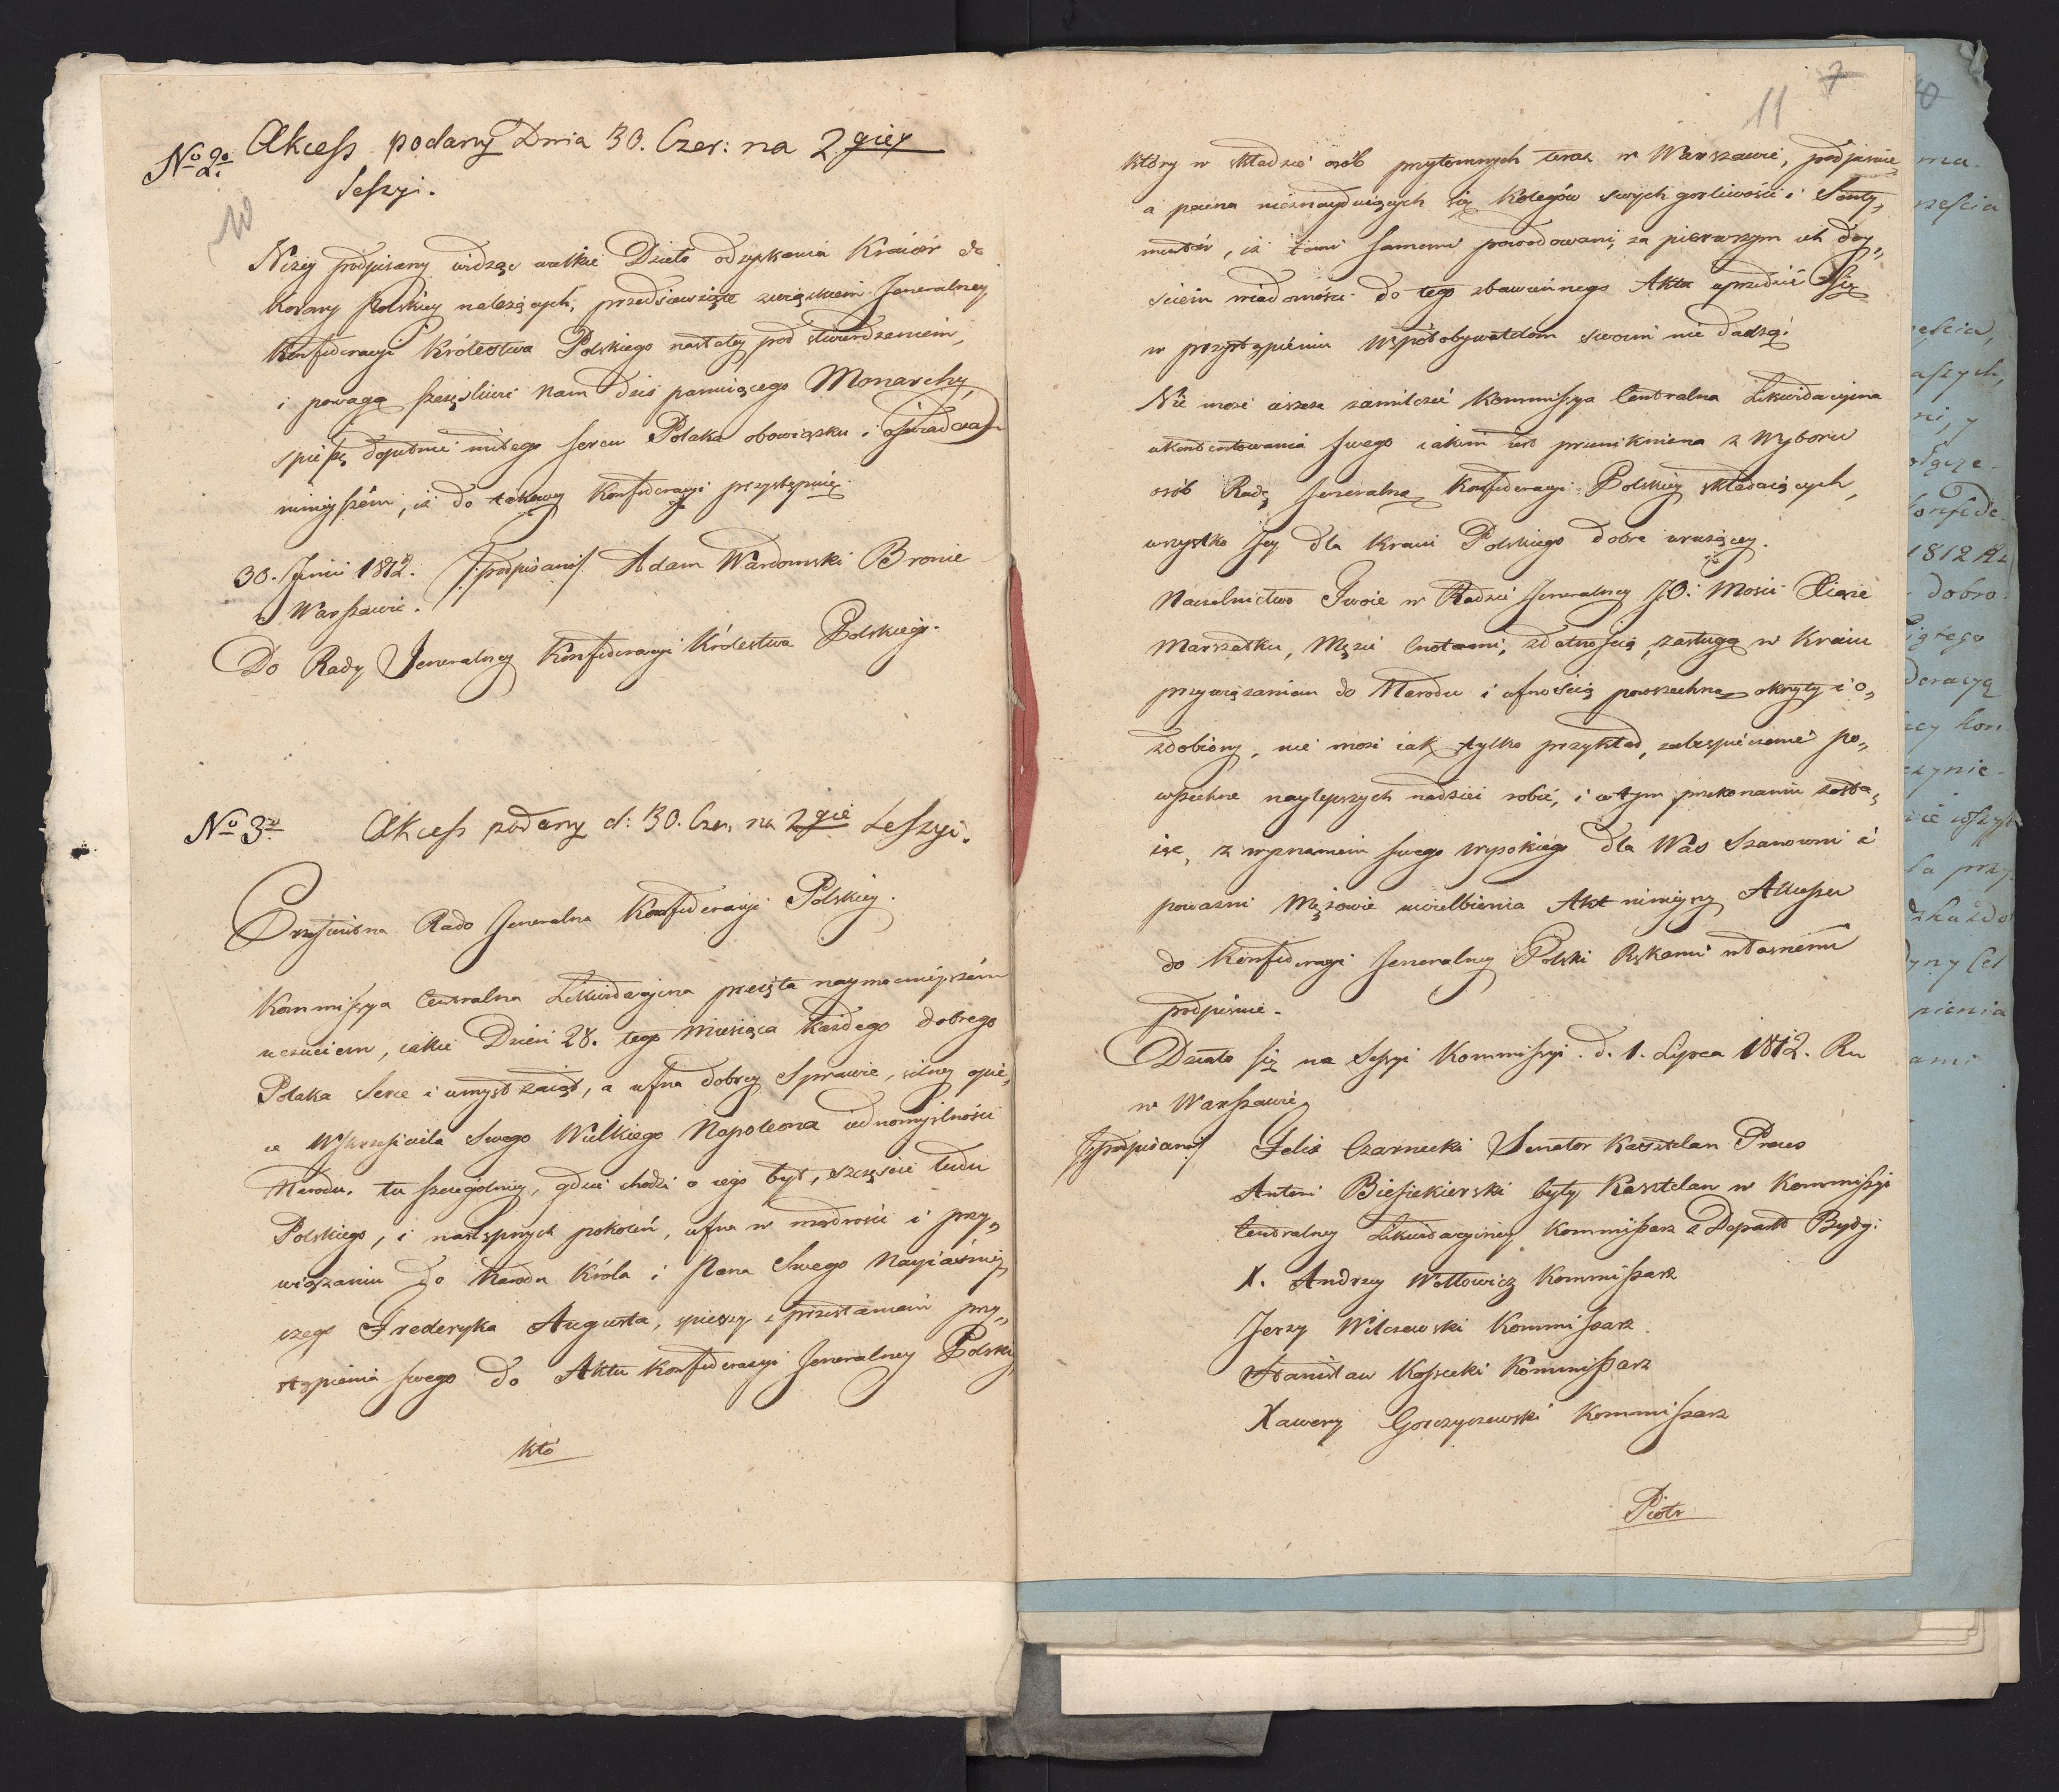 No 2o Akcess podany Dnia 30. Czer: na 2giey
Sessyi.
10
Niżey podpisany widząc wielkie Dzieło odzyskania Kraiów do
Korony Polskiey należących, przedsięwzięte związkiem Jeneralney
Konfederacyi Królestwa Polskiego nastałey pod stwierdzeniem,
i powagą szczęśliwie Nam dziś panuiącego Monarchy,
spieszę dopełnić miłego sercu Polaka obowiązku i oświadczam
ninieyszém, iż do takowey Konfederacyi przystępuię.
30. Junii 1812. /podpisano/ Adam Wardomski Bronic
w Warszawie.
Do Rady Jeneralney Konfederacyi Królestwa Polskiego.
No 3o Akcess podany d: 30. Czer. na 2gie Sessyi.
Prześwietna Rado Jeneralna Konfederacyi Polskiey.
Kommissya Centralna Likwidacyina przeięta naymocnieyszém
uczuciem, iakie Dzień 28. tego Miesiąca każdego dobrego
Polaka Serce i umysł zaiął, a ufna dobrey Sprawie, silney opie„
ce Wskrzesiciela Swego Wielkiego Napoleona iednomyślności
Narodu. tu szczególniey, gdzie chodzi o iego byt, szczęście ludu
Polskiego, i następnych pokoleń, ufna w mądrości i przy„
wiązaniu do Narodu Króla i Pana Swego Nayiaśniey
szego Frederyka Augusta, spieszy z przesłaniem przy„
stąpienia swego do Aktu Konfederacyi Jeneralney Polskiey
któ
11 7
który w składzie osób przytomnych teraz w Warszawie, podpisuie
a pewna nieznayduiących się Kolegów swych gorliwości i Senty„
mentów, iż temi samemi powodowani, za pierwszym ich doy„
sciem wiadomości do tego zbawiennego Aktu uprzedzić Się
w przystąpieniu Współobywatelom swoim nie dadzą.
Nie może ieszcze zamilczéć Kommissya Centralna Likwidacyina
ukontentowania swego iakim iest przeniknieną z Wyboru
osób Radę Jeneralną Konfederacyi Polskiey składaiących,
wszystko Jey dla Kraiu Polskiego dobre wrużącey.
Naczelnictwo Twoie w Radzie Jeneralney JO: Mości Xiąże
Marszałku, Mężu Cnotami, zdatnością, zasługą w Kraiu
przywiązaniem do Narodu i ufnością powszechną okryty i o„
zdobiony, nie może iak tylko przykład, zabespieczenie po„
wszechne naylepszych nadziei robić, i w tym przekonaniu zosta„
iąc, z wyznaniem swego wysokiego dla Was Szanowni i
poważni Mężowie uwielbienia Akt ninieyszy Akcessu
do Konfederacyi Jeneralney Polski Rękami własnemi
podpisuie.
Działo się na Sessyi Kommissyi. d. 1. Lipca 1812. Ru
w Warszawie
/podpisano/ Felix Czarnecki Senator Kasztelan Prezes
Antoni Biesiekierski były Kasztelan w Kommissyi
Centralney Likwidacyiney Kommissarz z Depart Bydg:
X. Andrzey Wołłowicz Kommissarz
Jerzy Wilczewski Kommissarz.
Stanisław Kossecki Kommissarz
Xawery Gorczyczewski Kommissarz
Piotr